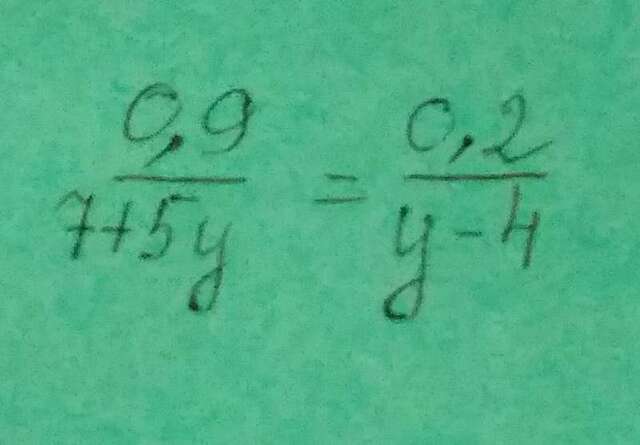 0,9/(7+5y) = 0,2/(y-4)